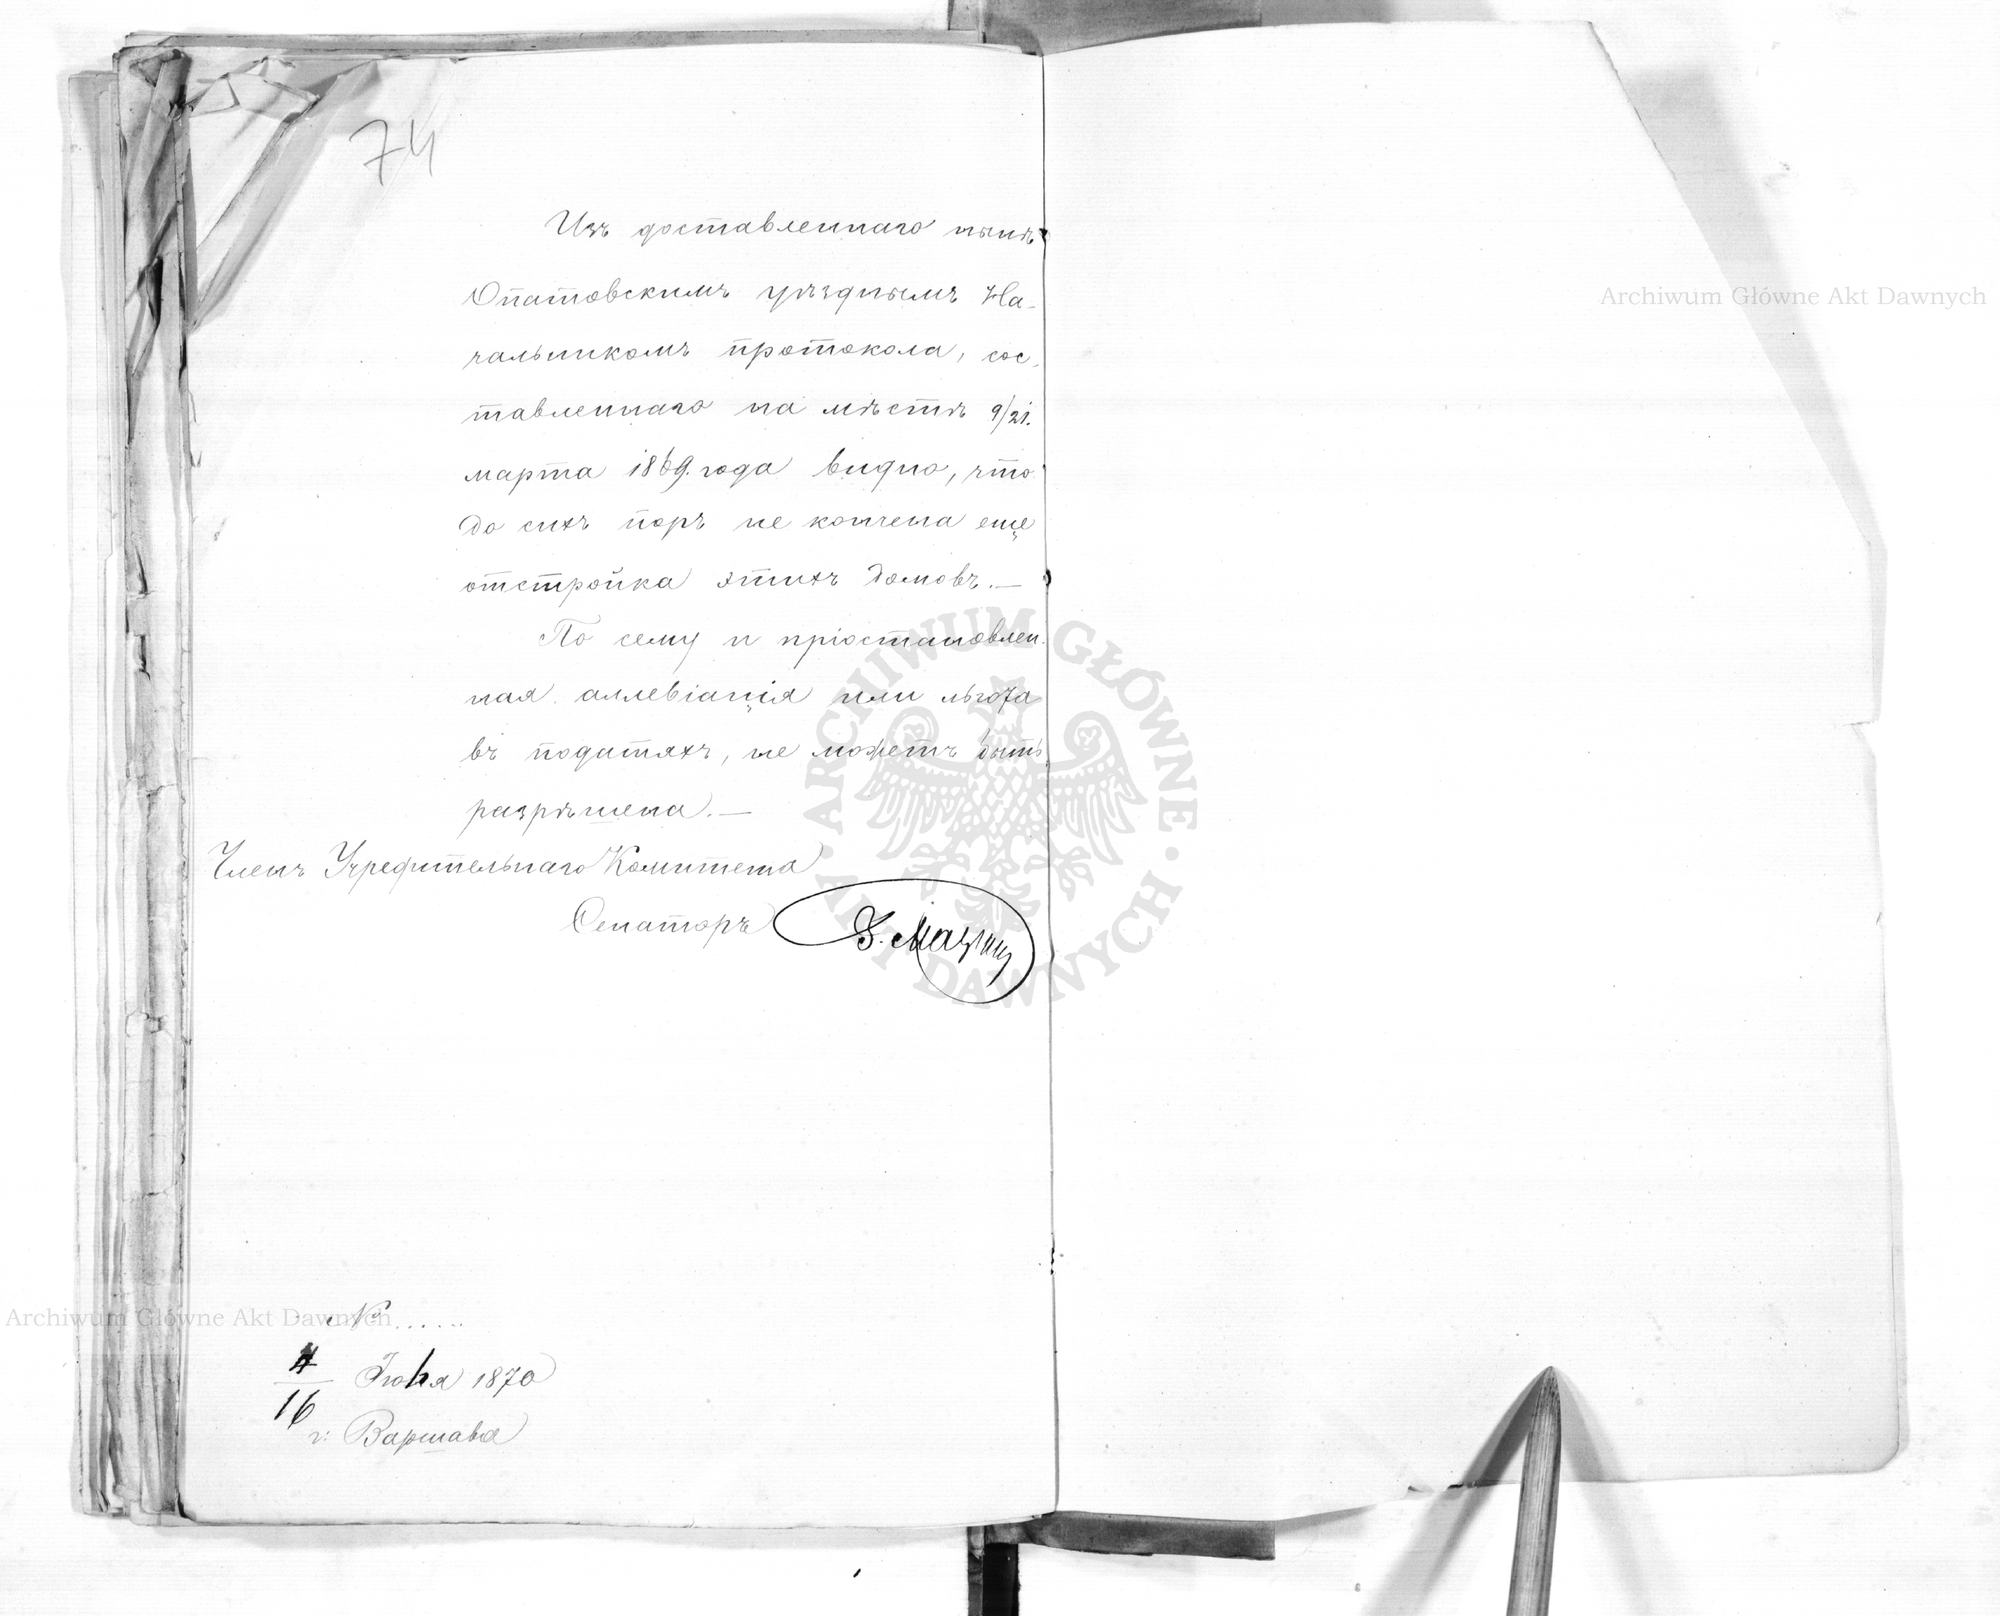 74
Изъ доставленнаго нынѣ
Опатовскимъ уѣзднымъ На-
чальникомъ протокола, сос-
тавленнаго на мѣстѣ 9/21.
марта 1869. года видно, что
до сихъ поръ не кончена еще
отстройка этихъ домовъ.—
По сему и пріостановлен-
ная аллевіація или льгота
въ податяхъ, не можетъ быть
разрѣшена.—
Членъ Учредительнаго Комитета
Сенаторъ
№......
4/16 Іюня 1870
г: Варшава
Archiwum Główne Akt Dawnych
Archiwum Główne Akt Dawnych
ARCHIWUM GŁÓWNE · AKT DAWNYCH ·